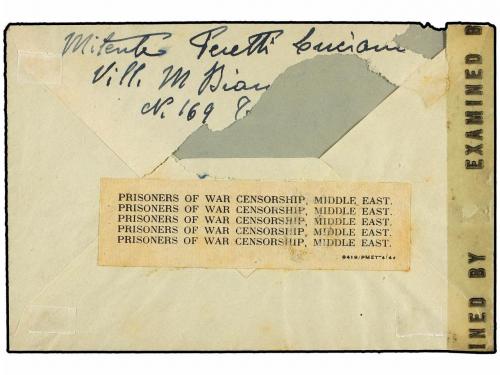 Mitente Peretti Luciano
Vill. M Bian
N. 169
PRISONERS OF WAR CENSORSHIP, MIDDLE EAST.
PRISONERS OF WAR CENSORSHIP, MIDDLE EAST.
PRISONERS OF WAR CENSORSHIP, MIDDLE EAST.
PRISONERS OF WAR CENSORSHIP, MIDDLE EAST.
PRISONERS OF WAR CENSORSHIP, MIDDLE EAST.
8419/PMET-4/44
INED BY EXAMINED B